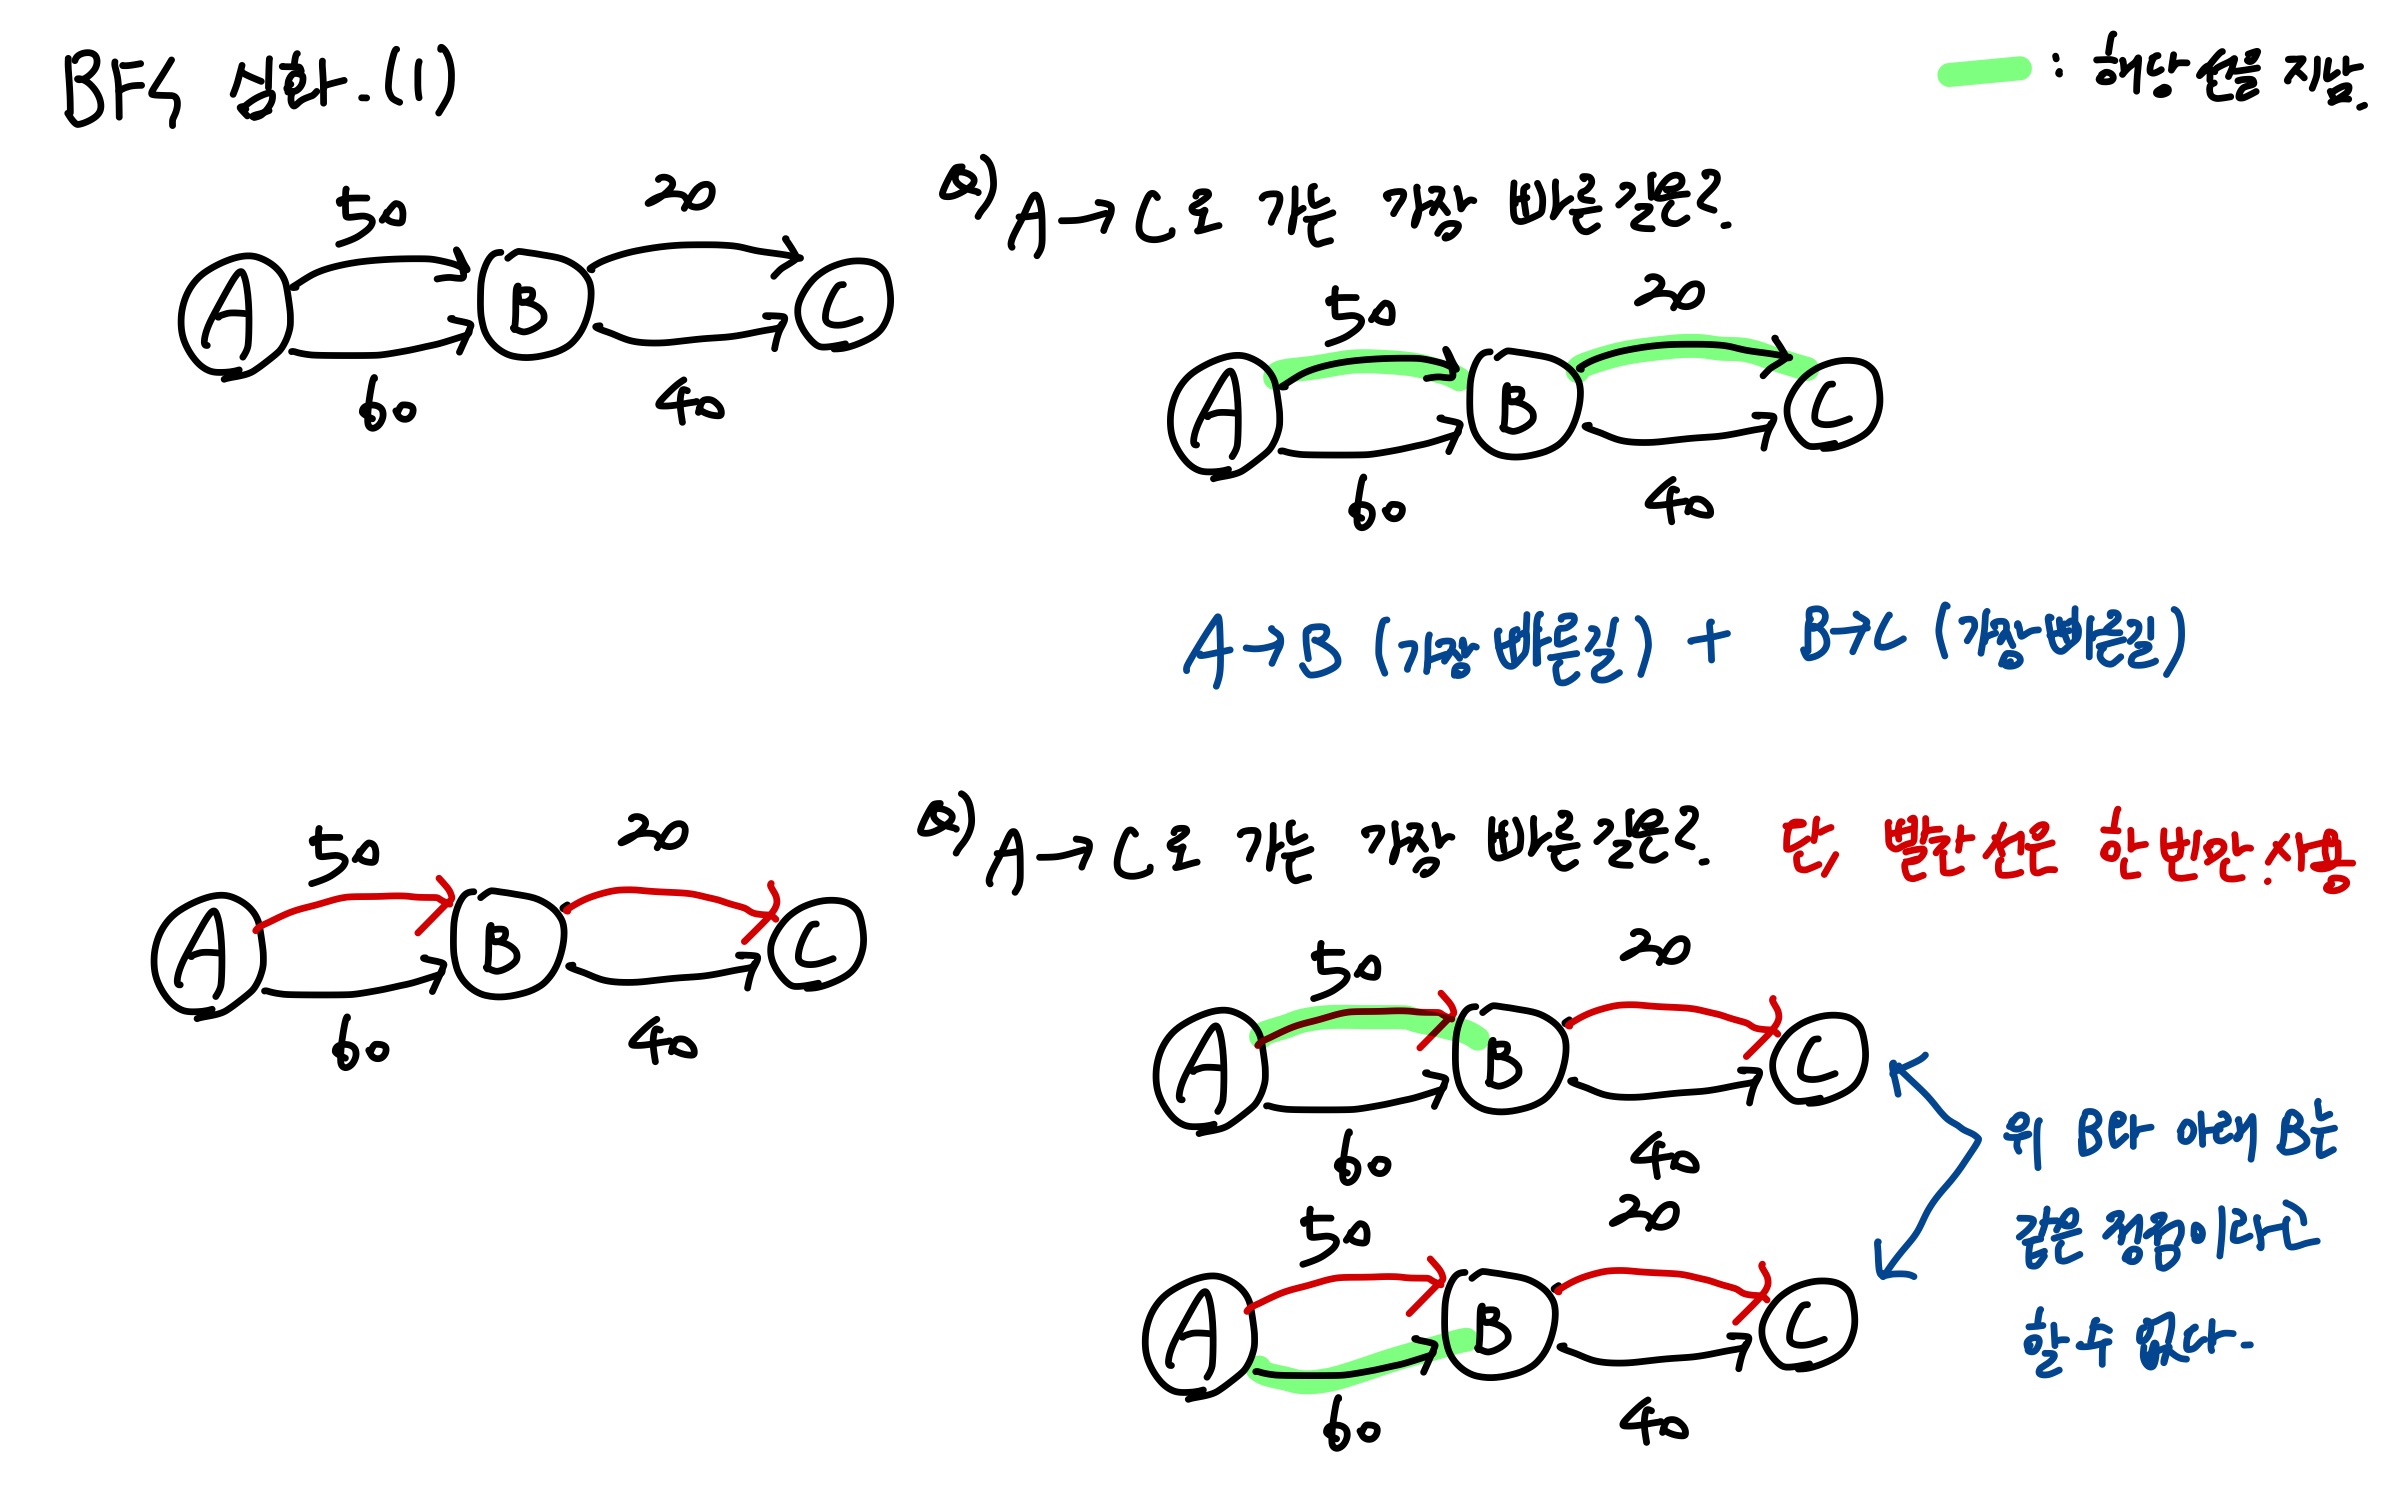 BFS 심화.(1)
: 해당 선을 지남.
50
20
A
B
C
60
40
Q) A→C로 가는 가장 빠른 길은?.
50
20
A
B
C
60
40
A→B (가장 빠른길) + B→C (가장 빠른길)
50
20
A
B
C
60
40
Q) A→C로 가는 가장 빠른 길은?. 단, 빨간 선은 한번만.사용
50
20
A
B
C
60
40
위 B와 아래 B는
같은 정점이라고
할 수 없다.
50
20
A
B
C
60
40